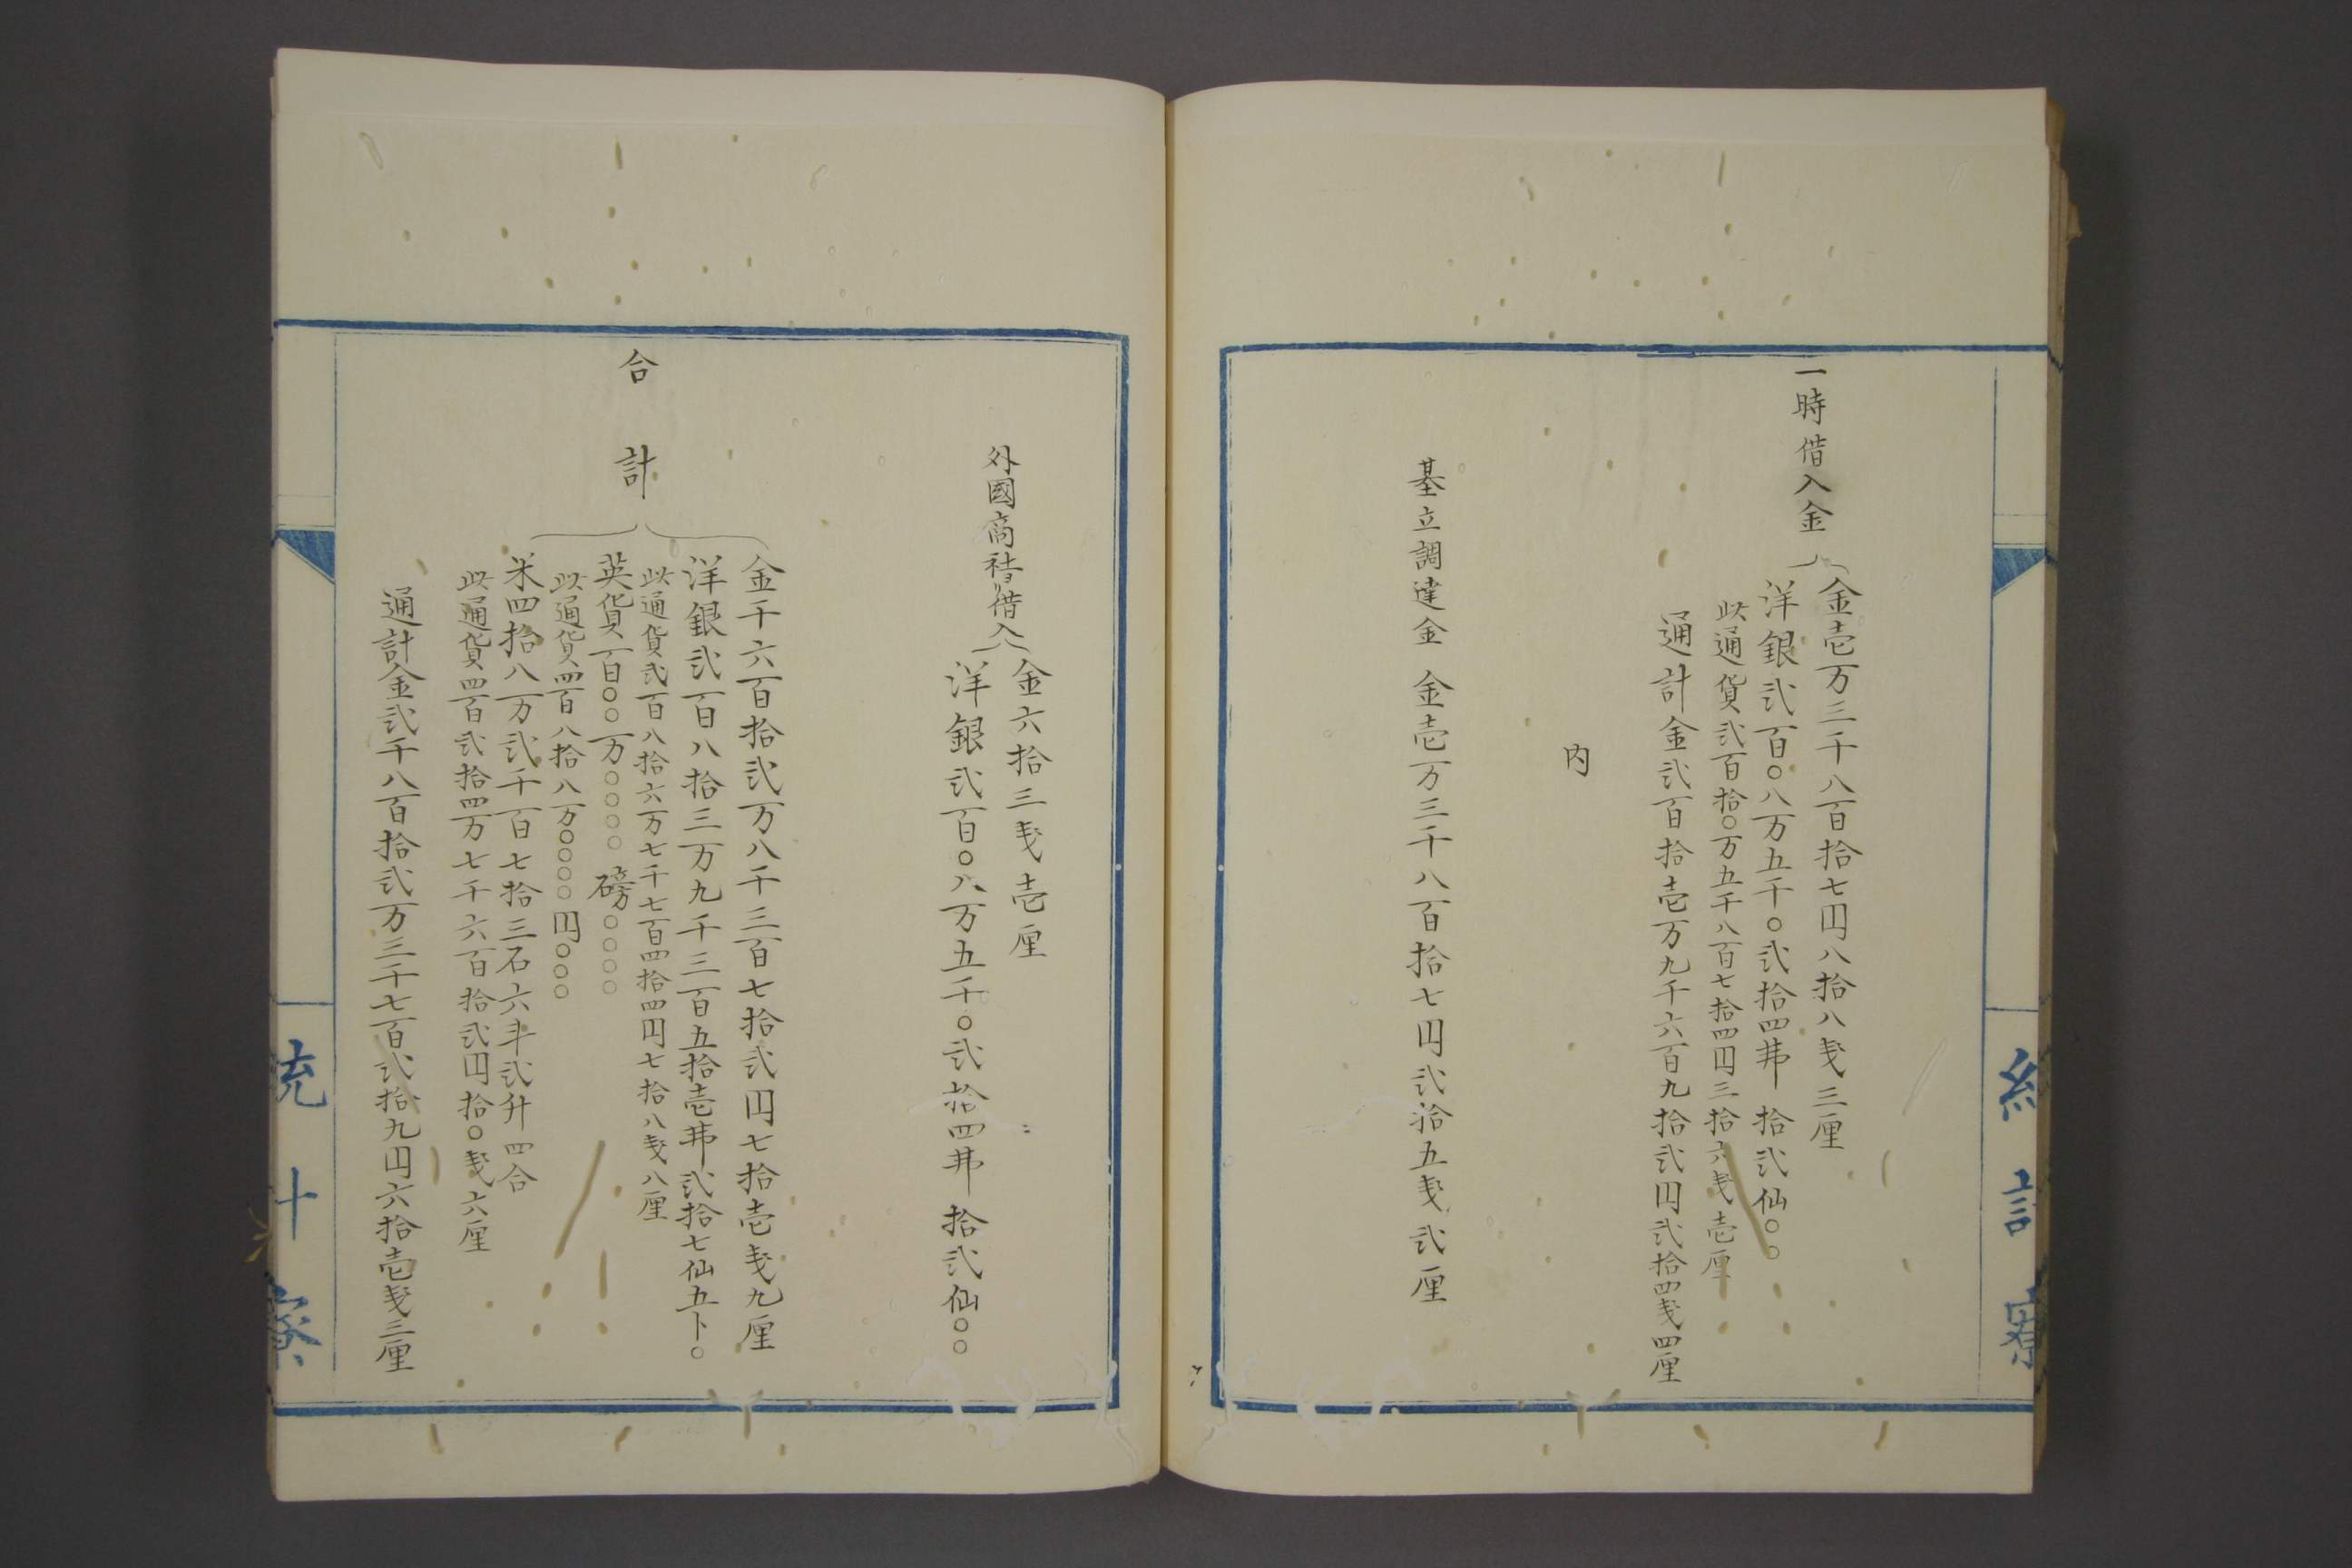 統計寮
一時借入金
金壱万三千八百拾七円八拾八戔三厘
洋銀弐百〇八万五千〇弐拾四弗拾弐仙〇〇
此通貨弐百拾〇万五千八百七拾四円三拾六戔壱厘
通計金弐百拾壱万九千六百九拾弐円弐拾四戔四厘
内
基立調達金 金壱万三千八百拾七円弐拾五戔弐厘
外國商社ゟ借入
金六拾三戔壱厘
洋銀弐百〇八万五千〇弐拾四弗拾弐仙〇〇
合計
金千六百拾弐万八千三百七拾弐円七拾壱戔九厘
洋銀弐百八拾三万九千三百五拾壱弗弐拾七仙五卜〇
此通貨弐百八拾六万七千七百四拾四円七拾八戔八厘
英貨百〇〇万〇〇〇〇磅〇〇〇〇
此通貨四百八拾八万〇〇〇〇円〇〇〇
米四拾八万弐千百七拾三石六斗弐升四合
此通貨四百弐拾四万七千六百拾弐円拾〇戔六厘
通計金弐千八百拾弐万三千七百弐拾九円六拾壱戔三厘
統計寮